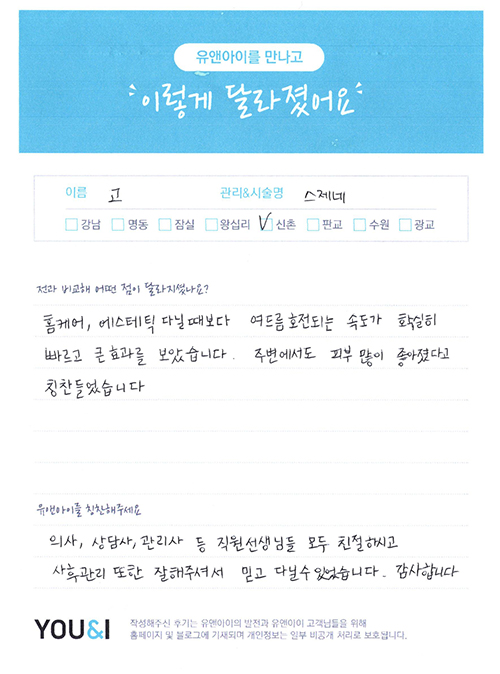 유앤아이를 만나고
이렇게 달라졌어요
이름 고 관리&시술명 스제네
강남 명동 잠실 왕십리 V 신촌 판교 수원 광교
전과 비교해 어떤 점이 달라지셨나요?
홈케어, 에스테틱 다닐때보다 여드름호전되는 속도가 확실히
빠르고 큰효과를 보았습니다. 주변에서도 피부 많이 좋아졌다고
칭찬들었습니다
유앤아이를 칭찬해주세요
의사, 상담사, 관리사 등 직원선생님들 모두 친절하시고
사후관리 또한 잘해주셔서 믿고 다닐수있었습니다. 감사합니다
YOU&I 작성해주신 후기는 유앤아이의 발전과 유앤아이 고객님들을 위해
홈페이지 및 블로그에 기재되며 개인정보는 일부 비공개 처리로 보호됩니다.